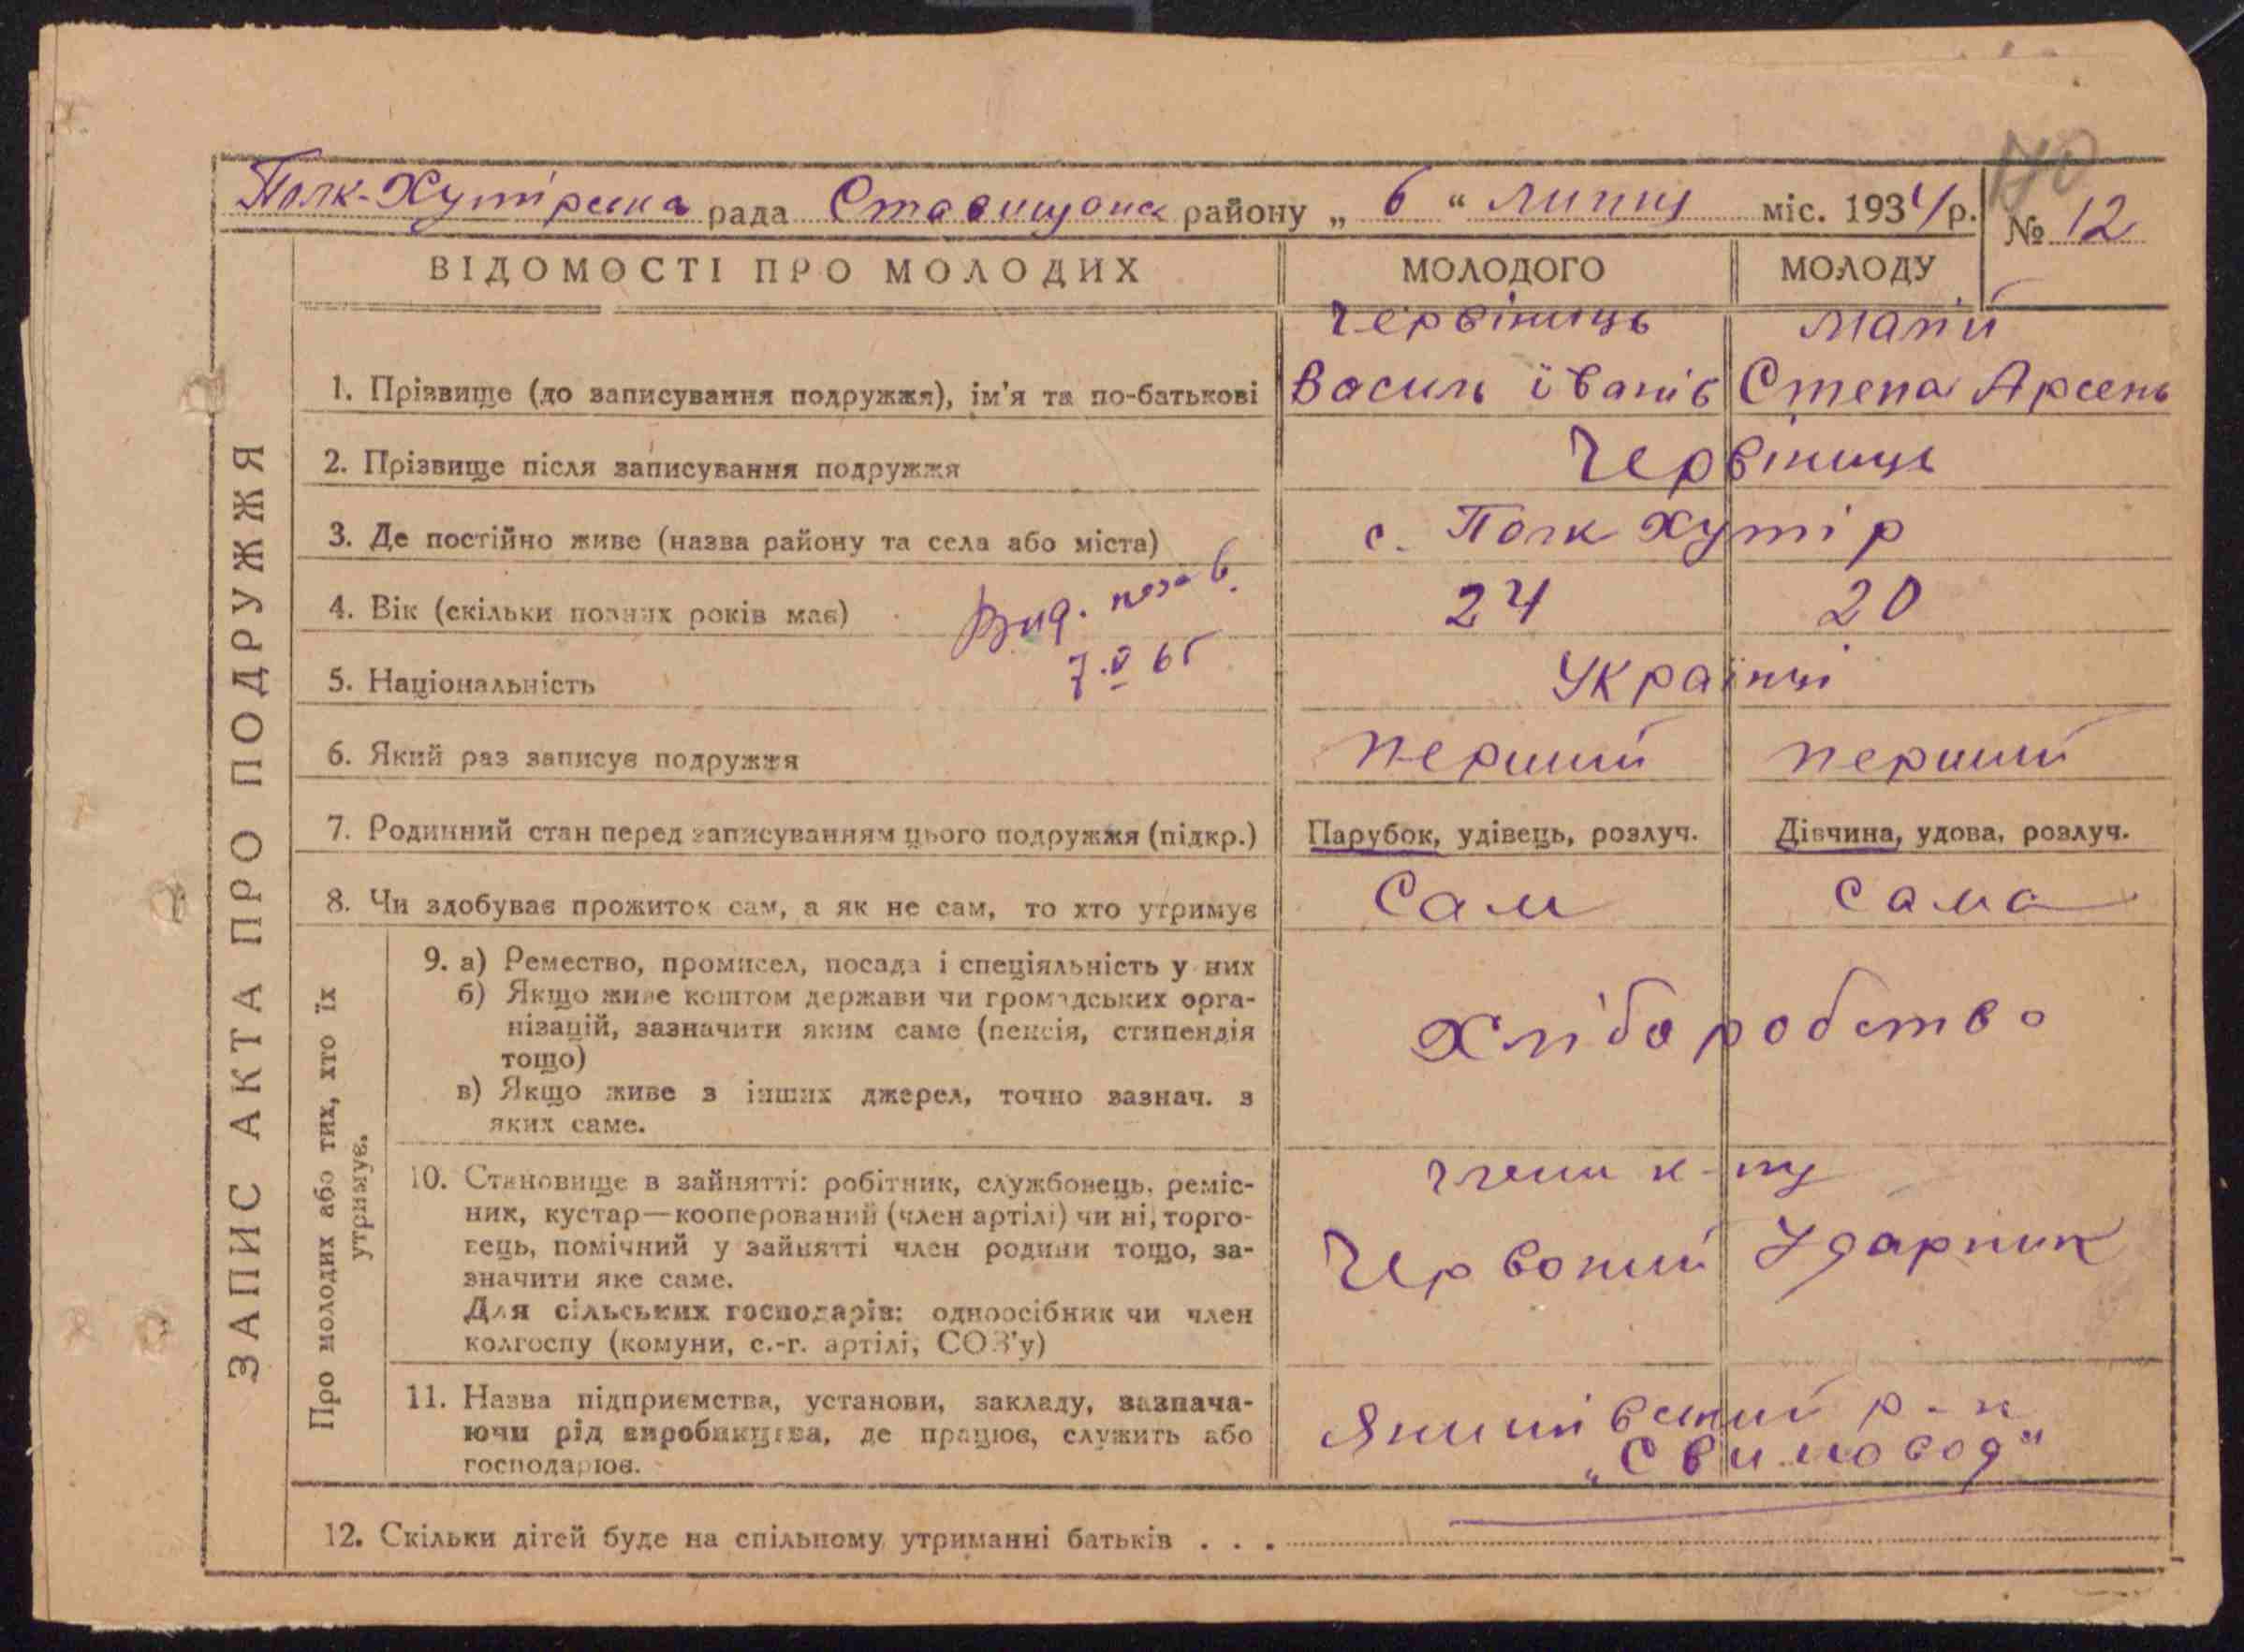 140
Полк-Хутірська рада Ставищанск району „ 6 “ липця міс. 1934 р. № 12
ВІДОМОСТІ ПРО МОЛОДИХ МОЛОДОГО МОЛОДУ
Червінець Мапій
1. Прізвище (до записування подружжя), ім'я та по-батькові Василь іванів Степа Арсень
2. Прізвище після записування подружжя Червінець
3. Де постійно живе (назва району та села або міста) с. Полк Хутір
4. Вік (скільки повних років має) 24 20
Вид. повз в.
7.V 65
5. Національність Українці
6. Який раз записує подружжя перший перший
7. Родинний стан перед записуванням цього подружжя (підкр.) Парубок, удівець, розлуч. Дівчина, удова, розлуч.
8. Чи здобуває прожиток сам, а як не сам, то хто утримує Сам сама
ЗАПИС АКТА ПРО ПОДРУЖЖЯ
Про молодих або тих, хто їх
утримує.
9. а) Ремество, промисел, посада і спеціяльність у них
б) Якщо живе коштом держави чи громадських орга-
нізацій, зазначити яким саме (пенсія, стипендія
тощо)
в) Якщо живе з інших джерел, точно зазнач. з
яких саме.
Хліборобство
10. Становище в зайнятті: робітник, службовець, реміс-
ник, кустар—кооперований (член артілі) чи ні, торго-
вець, помічний у зайнятті член родини тощо, за-
значити яке саме.
Для сільських господарів: одноосібник чи член
колгоспу (комуни, с.-г. артілі, СОЗ'у)
члени к-пу
Червоний Ударник
11. Назва підприємства, установи, закладу, зазнача-
ючи рід виробництва, де працює, служить або
господарює.
р-н
12. Скільки дітей буде на спільному утриманні батьків . . .